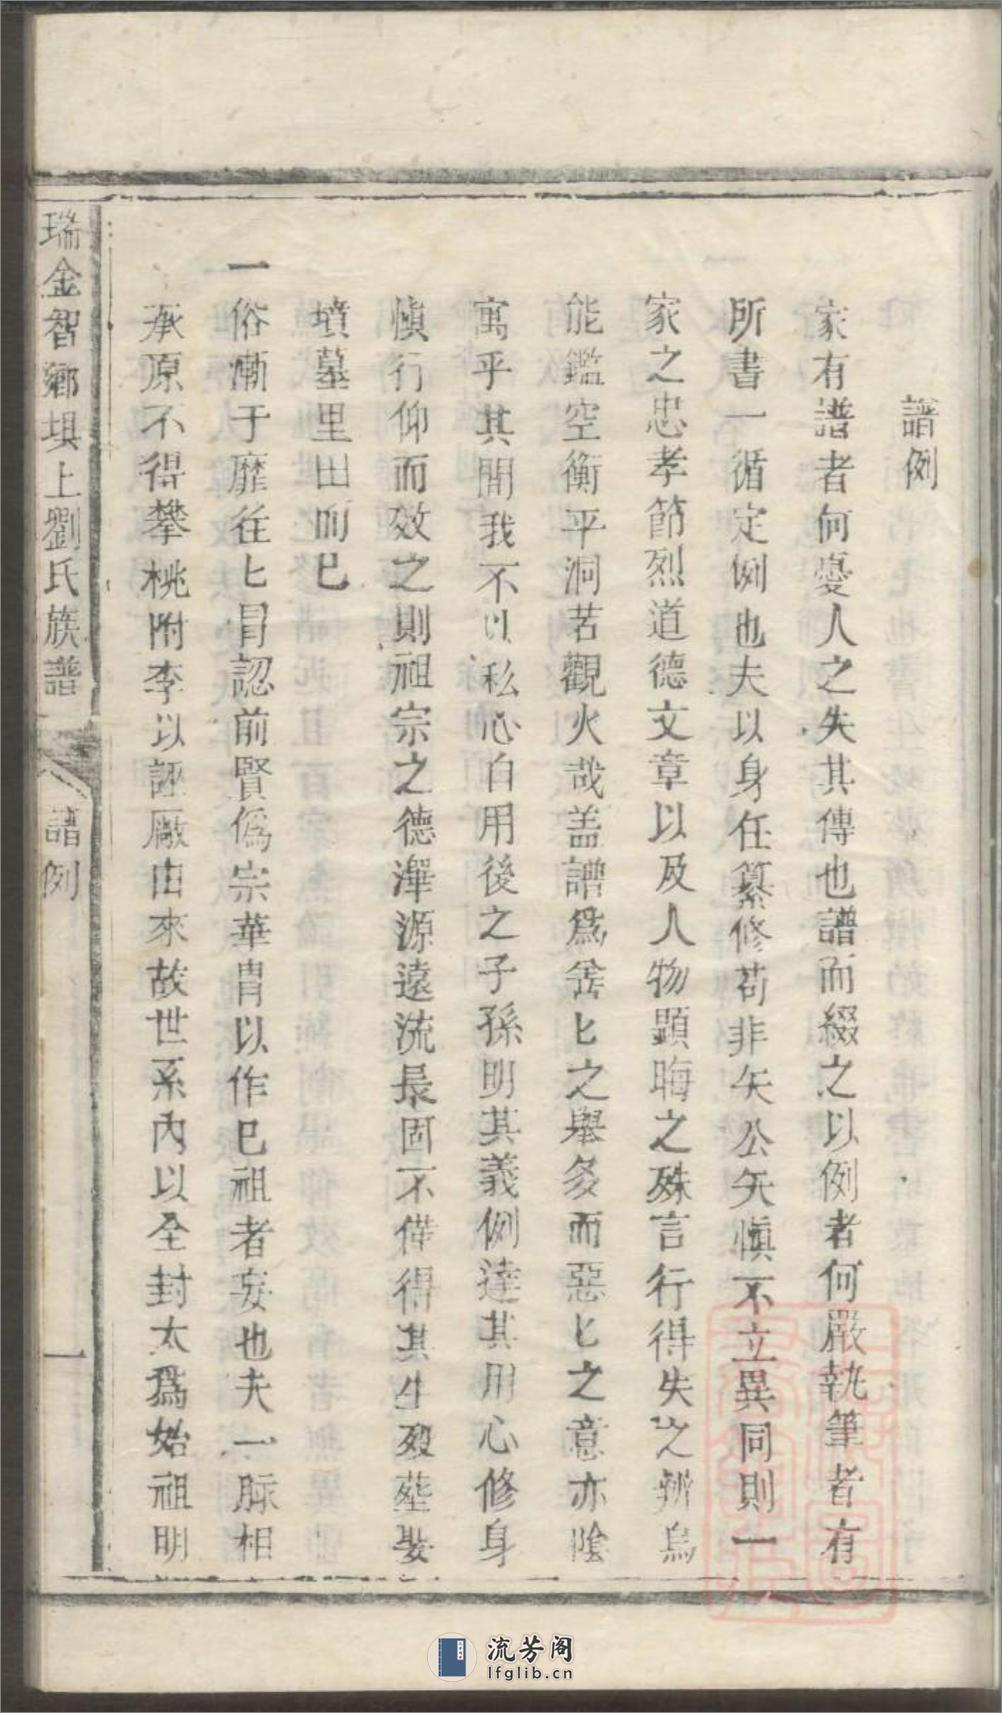 譜例
家有譜者何憂人之失其傳也譜而綴之以例者何嚴執筆者有
所書一循定例也夫以身任纂修苟非矢公矢慎不立異同則一
家之忠孝節烈道德文章以及人物顯晦之殊言行得失之辨烏
能鑑空衡平洞若觀火哉盖譜爲善匕之舉多而惡匕之意亦陰
寓乎其間我不以私心自用後之子孫明其義例達其用心修身
慎行仰而效之則祖宗之德澤源遠流長固不僅得其生歿塟娶
墳墓里田而已
一俗漸于靡往匕冒認前賢僞宗華胄以作已祖者妄也夫一脉相
承原不得攀桃附李以誣厥由來故世系內以全封太爲始祖明
瑞金智鄉垻上劉氏族譜
譜例
一
流芳阁
lfglib.cn